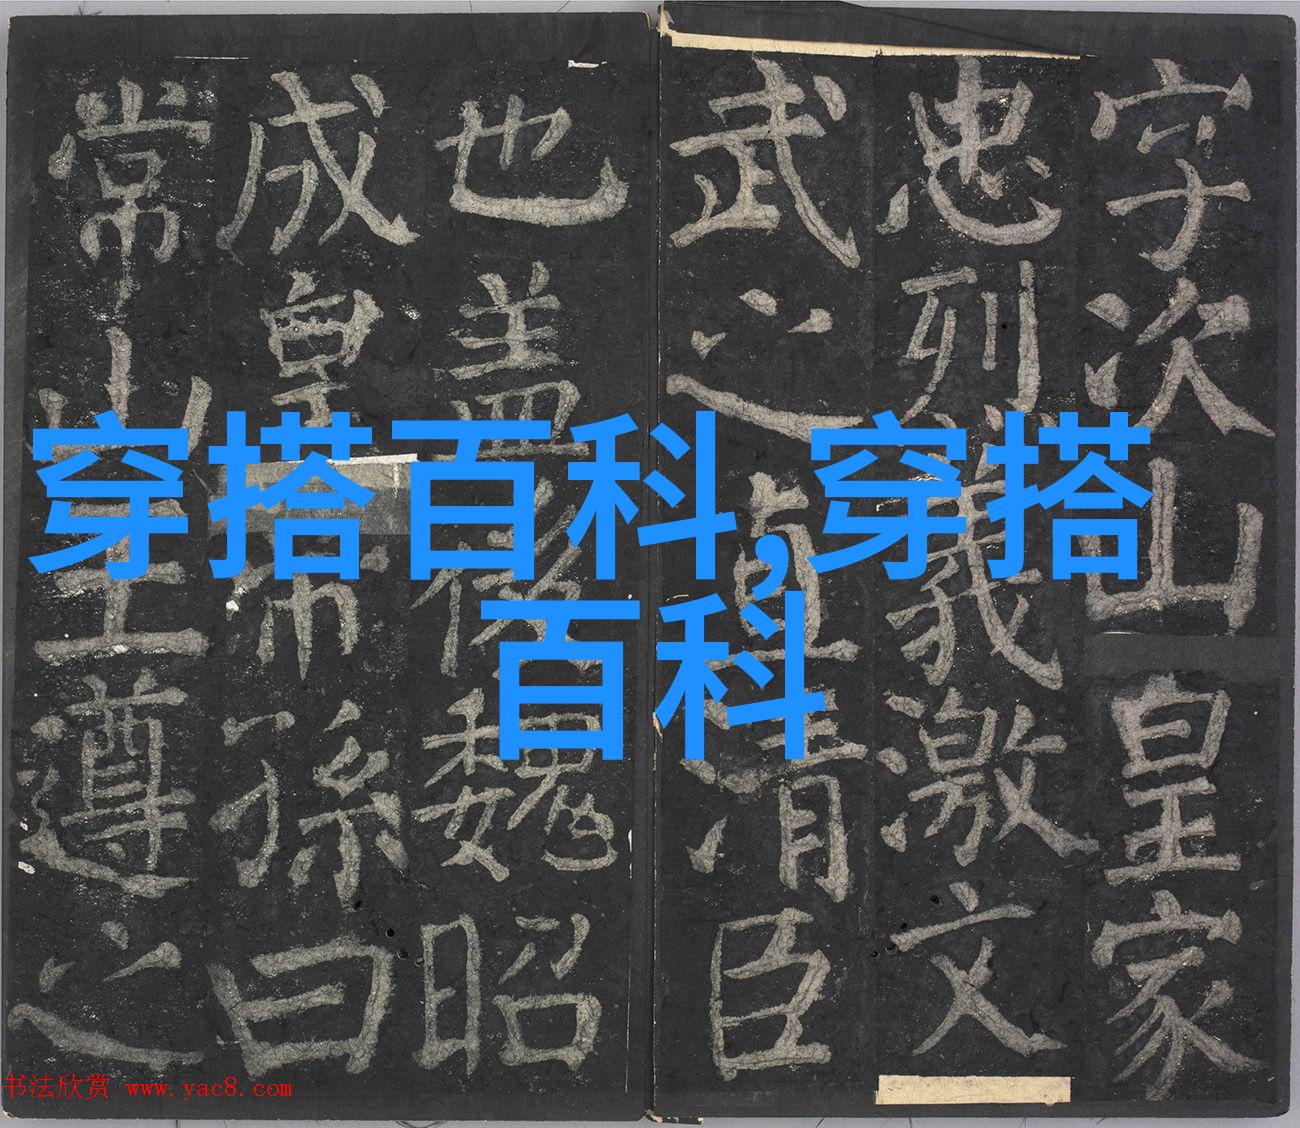 字次山皇家
忠烈義激文
武之直清臣
也盖後魏昭
成皇帝孫曰
常山王遵之
穿搭百科,穿搭
百科
书法欣赏 www.yac8.com